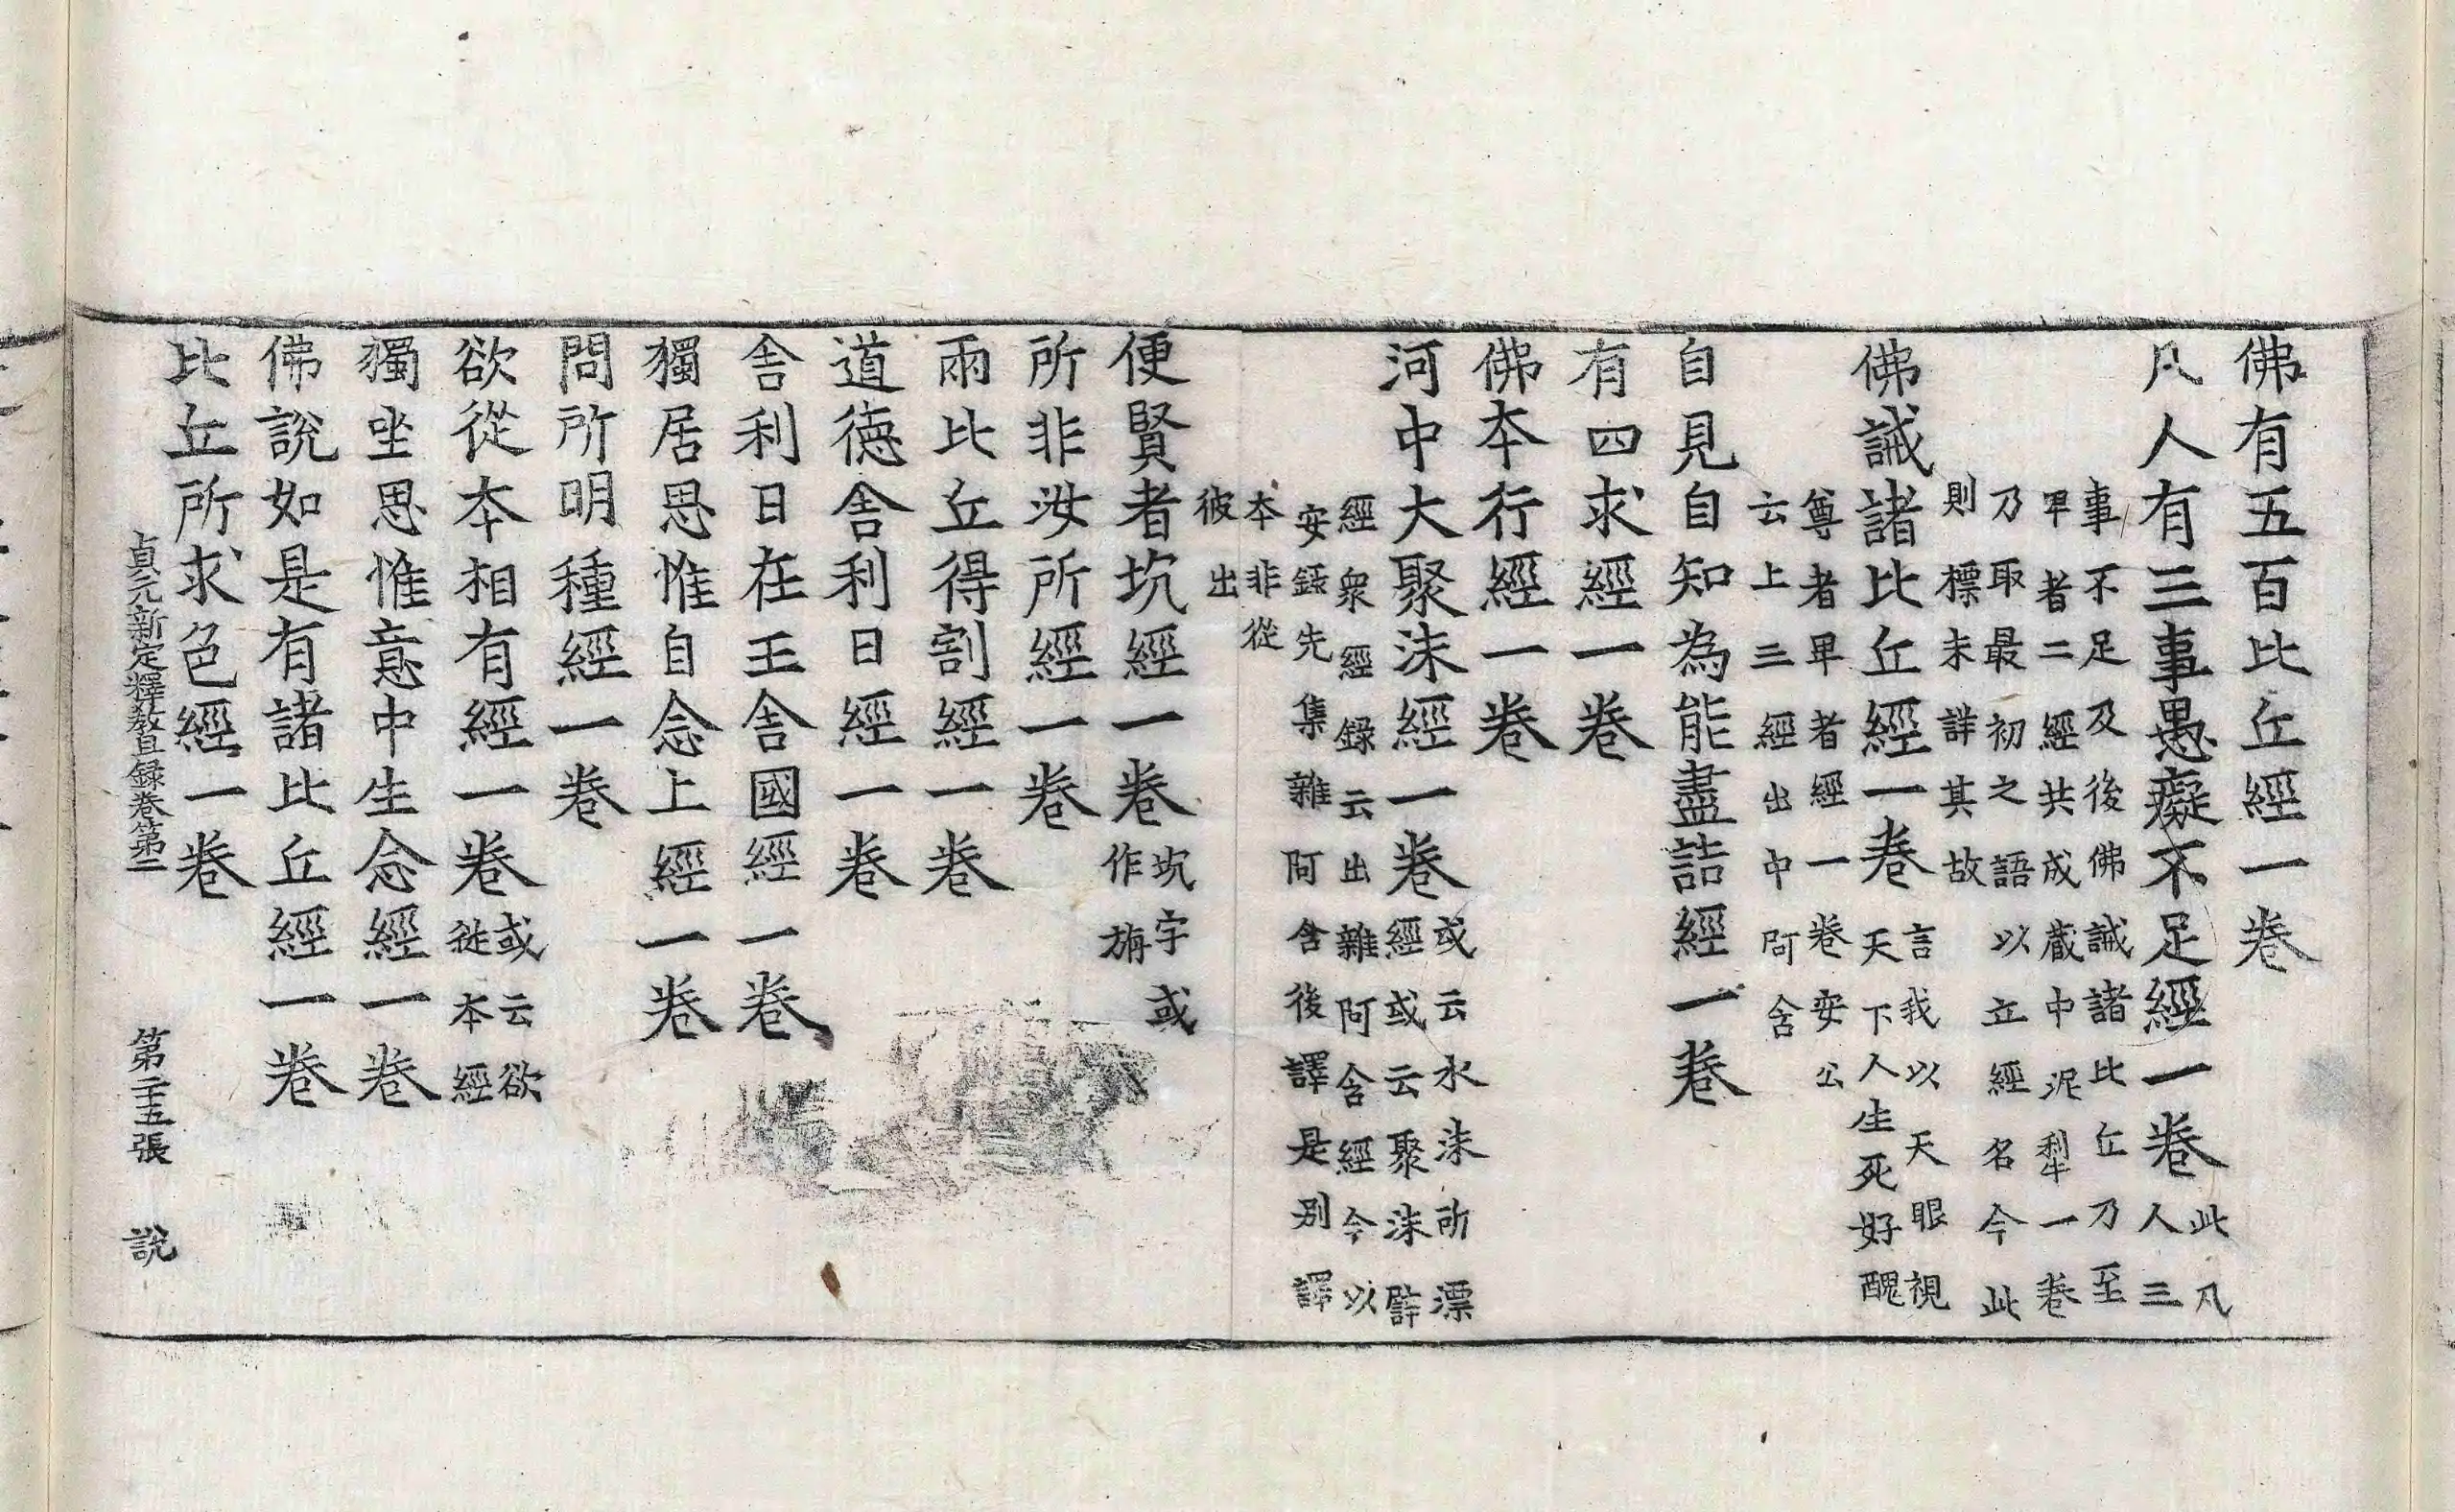 佛有五百比丘經一卷
凡人有三事愚癡不足經一卷此凡人三
事不足及後佛誡諸比丘乃至
甲者二經共成蔵中泥犁一卷
乃取最初之語以立經名今此
則標未詳其故
佛誡諸比丘經一卷言我以天眼視天下人生死好醜
尊者卑者經一卷安公
云上三經出中阿含
自見自知為能盡詰經一卷
有四求經一卷
佛本行經一卷
河中大聚沫經一卷或云水沫所漂經或云聚沫譬
經衆經録云出雜阿含經今以
安録先集雜阿含後譯是別譯
本非從
彼出
便賢者坑經一卷坑字或作旃
所非汝所經一卷
兩比丘得割經一卷
道德舍利日經一卷
舍利日在王舍國經一卷
獨居思惟自念上經一卷
問所明種經一卷
欲從本相有經一卷或云欲從本經
獨坐思惟意中生念經一卷
佛說如是有諸比丘經一卷
比丘所求色經一卷
貞元新定釋教目録卷第二 第二十五張 說